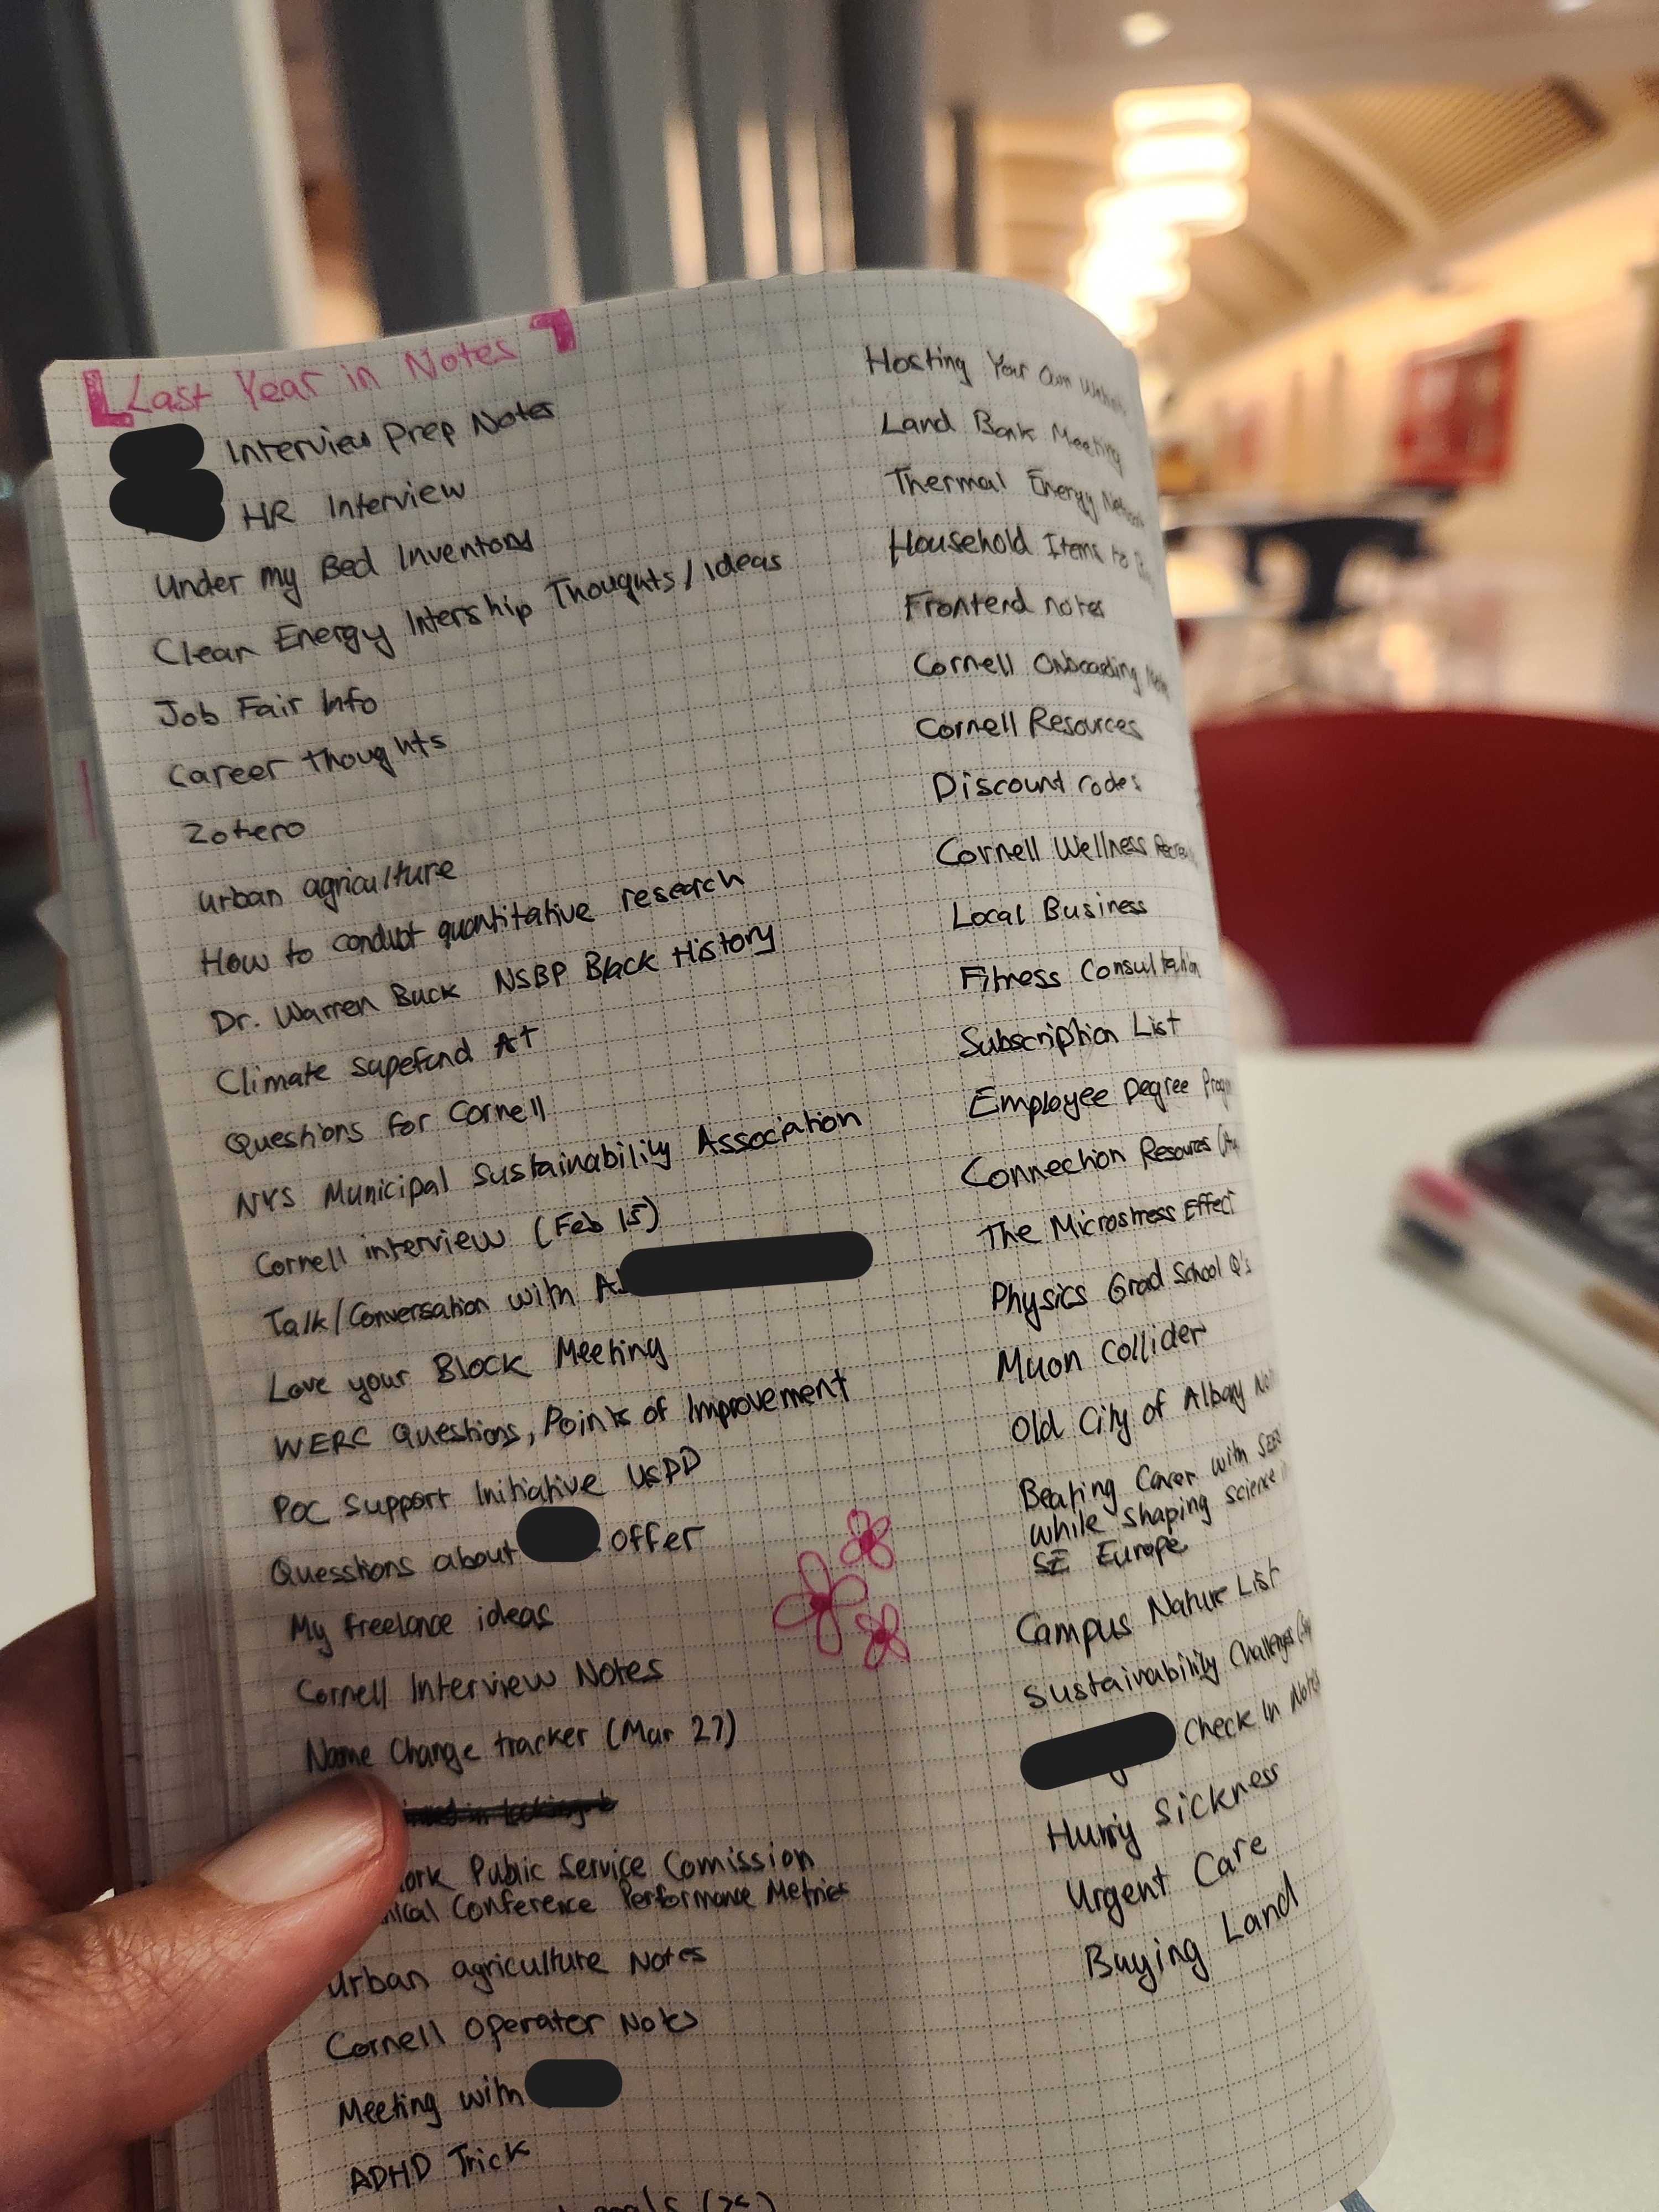 Last Year in Notes
Interview Prep Notes
HR Interview
Under my Bed Inventory
Clear Energy Intership Thoughts/ideas
Job Fair Info
Career thoughts
Zotero
Urban agriculture
How to conduct quantitative research
Dr. Warren Buck NSBP Black History
Climate Supefund Act
Questions for Cornell
NYS Municipal Sustainability Association
Cornell interview (Feb 15)
Talk/Conversation with
Love your Block Meeting
WERC Questions, Points of Improvement
POC Support Initiative USPD
Quesstions about offer
My freelance ideas
Cornell Interview Notes
Name Change tracker (Mar 27)
Public Service Comission
Conference Performance Metrics
Urban agriculture Notes
Cornell Operator Notes
Meeting with
ADHD Trick
Hosting Your Own
Land Bank Meeting
Thermal Energy
Household Items to
Frontend notes
Cornell Onboarding
Cornell Resources
Discount codes
Cornell Wellness
Local Business
Fitness Consultation
Subscription List
Employee Degree
Connection Resources
The Microstress Effect
Physics Grad School Q's
Muon Collider
Old City of Albany
Beating Cancer with
while shaping science
SE Europe
Campus Nature List
Sustainability Challenges
Check In Notes
Hurry Sickness
Urgent Care
Buying Land